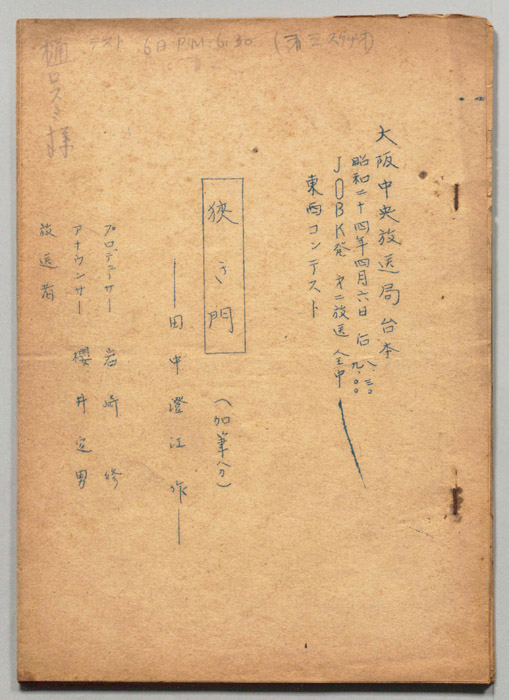 大阪中央放送局台本
昭和二十四年四月六日 后 八、三〇 九、〇〇
JOBK発 第二放送 全中
東西コンテスト
狭き門
(加筆分)
——田中澄江 作——
プロデューサー 岩崎 修
アナウンサー 櫻井定男
放送者
テスト 6日 P.M. 6:30 (第三スタジオ)
樋口スミ様